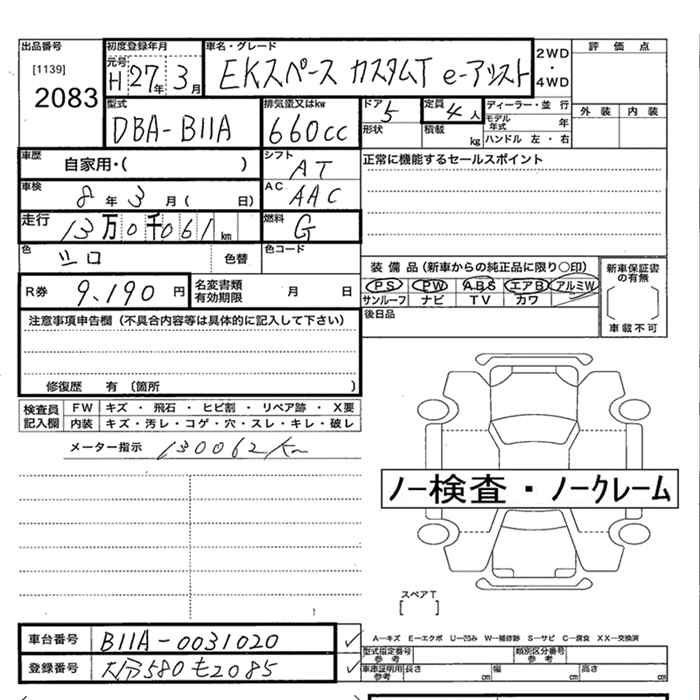 出品番号 初度登録年月 車名・グレード 評価点
[1139] 元号 H 27年 3月 EKスペース カスタムT e-アシスト 2WD・4WD
2083
型式 排気量又はkw ドア 定員 ディーラー・並行 外装 内装
DBA-B11A 660cc 5 4人 モデル年式 年
形状 積載 kg ハンドル 左・右
車歴 自家用・( ) シフト AT 正常に機能するセールスポイント
車検 8年3月( 日) AC AAC
走行 13万0千061km 燃料 G
色 シロ 色替 色コード
装備品(新車からの純正品に限り〇印) 新車保証書の有無
R券 9,190円 名変書類有効期限 月 日 PS PW ABS エアB アルミW
サンルーフ ナビ TV カワ
車載不可
注意事項申告欄(不具合内容等は具体的に記入して下さい) 後日品
修復歴 有 (箇所 )
検査員記入欄 FW キズ・飛石・ヒビ割・リペア跡・X要
内装 キズ・汚レ・コゲ・穴・スレ・キレ・破レ
メーター指示 130062Km
ノー検査・ノークレーム
スペアT
[ ]
車台番号 B11A-0031020 A―キズ E―エクボ U―凹み W―補修跡 S―サビ C―腐食 XX―交換済
型式指定番号 参考 類別区分番号 参考
登録番号 大分580も2085 車庫証明用 参考 長さ cm 幅 cm 高さ cm